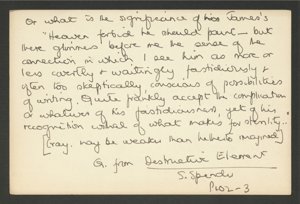 Or what is the significance of his James's
"Heaven forbid he should paint — but
there glimmers before me the sense of the
connection in which I see him as more or
less covertly & waitingly, fastidiously &
often too sceptically, conscious of possibilities
of writing. Quite frankly accept the complication
or whatever of his fastidiousness, yet of his
recognition withal of what makes for sterility..."
[Gray. may be weaker than hitherto imagined]
Q. from Destructive Element
S. Spender
P102-3